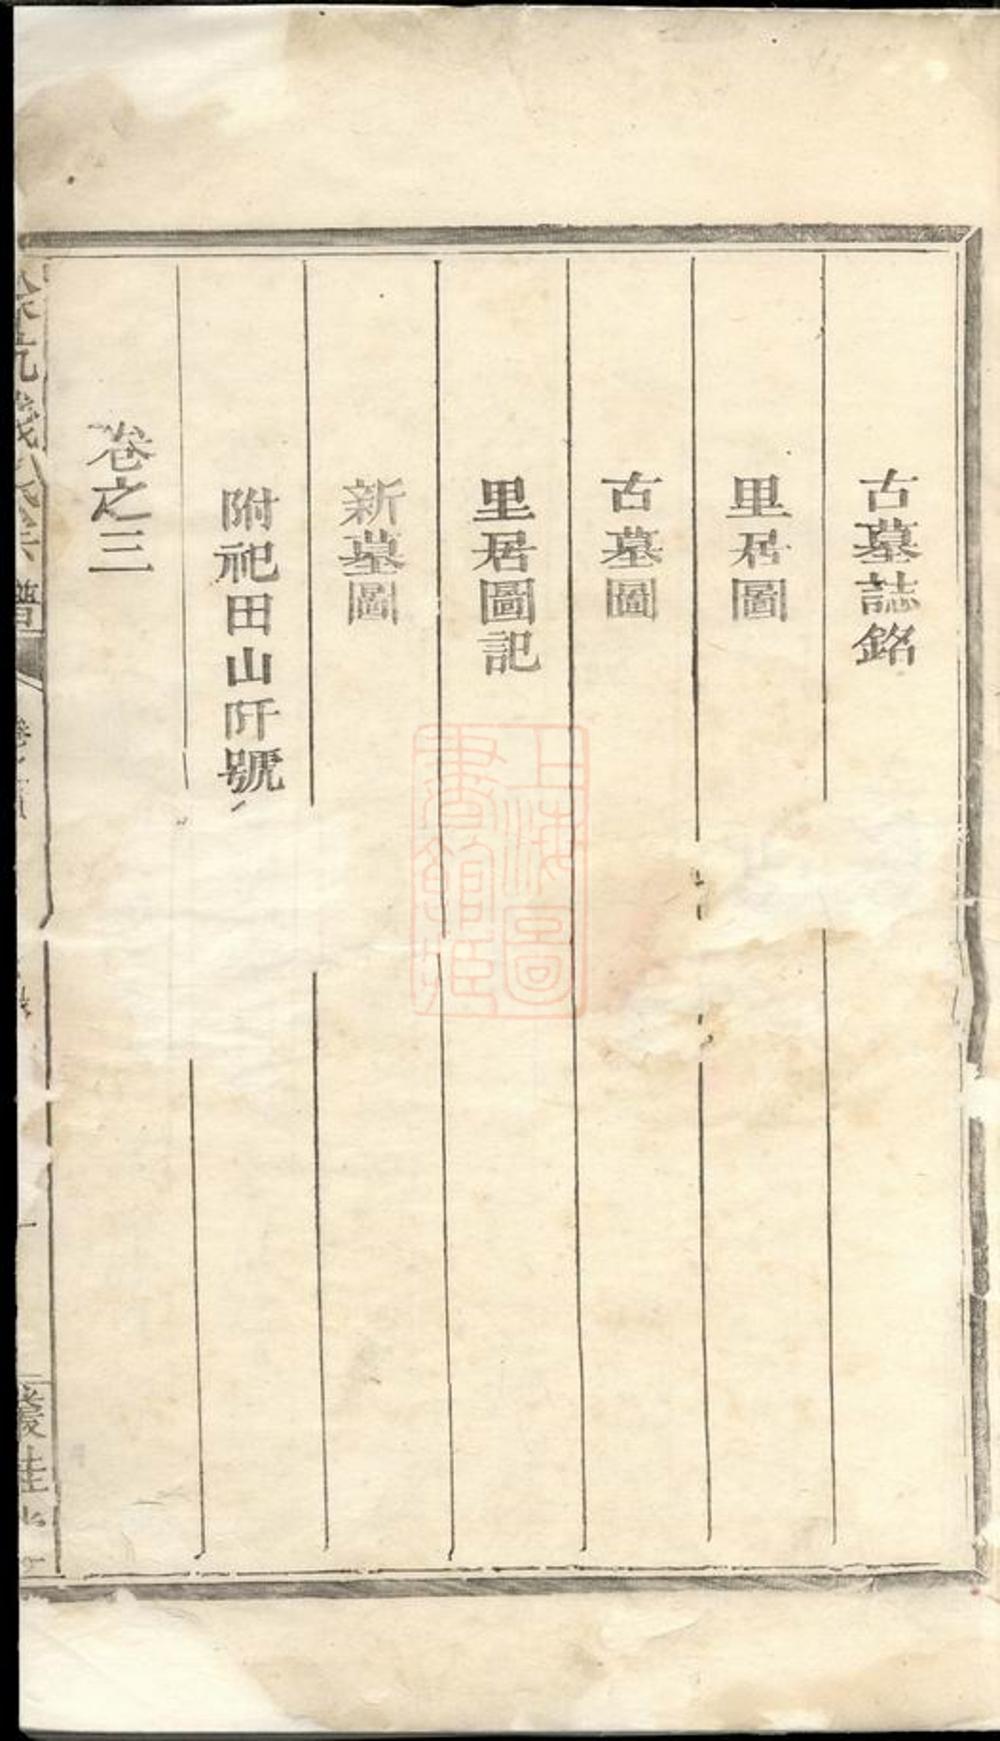 古墓誌銘
里居圖
古墓圖
里居圖記
新墓圖
附祀田山阡號
卷之三
譜
上海圖
書館